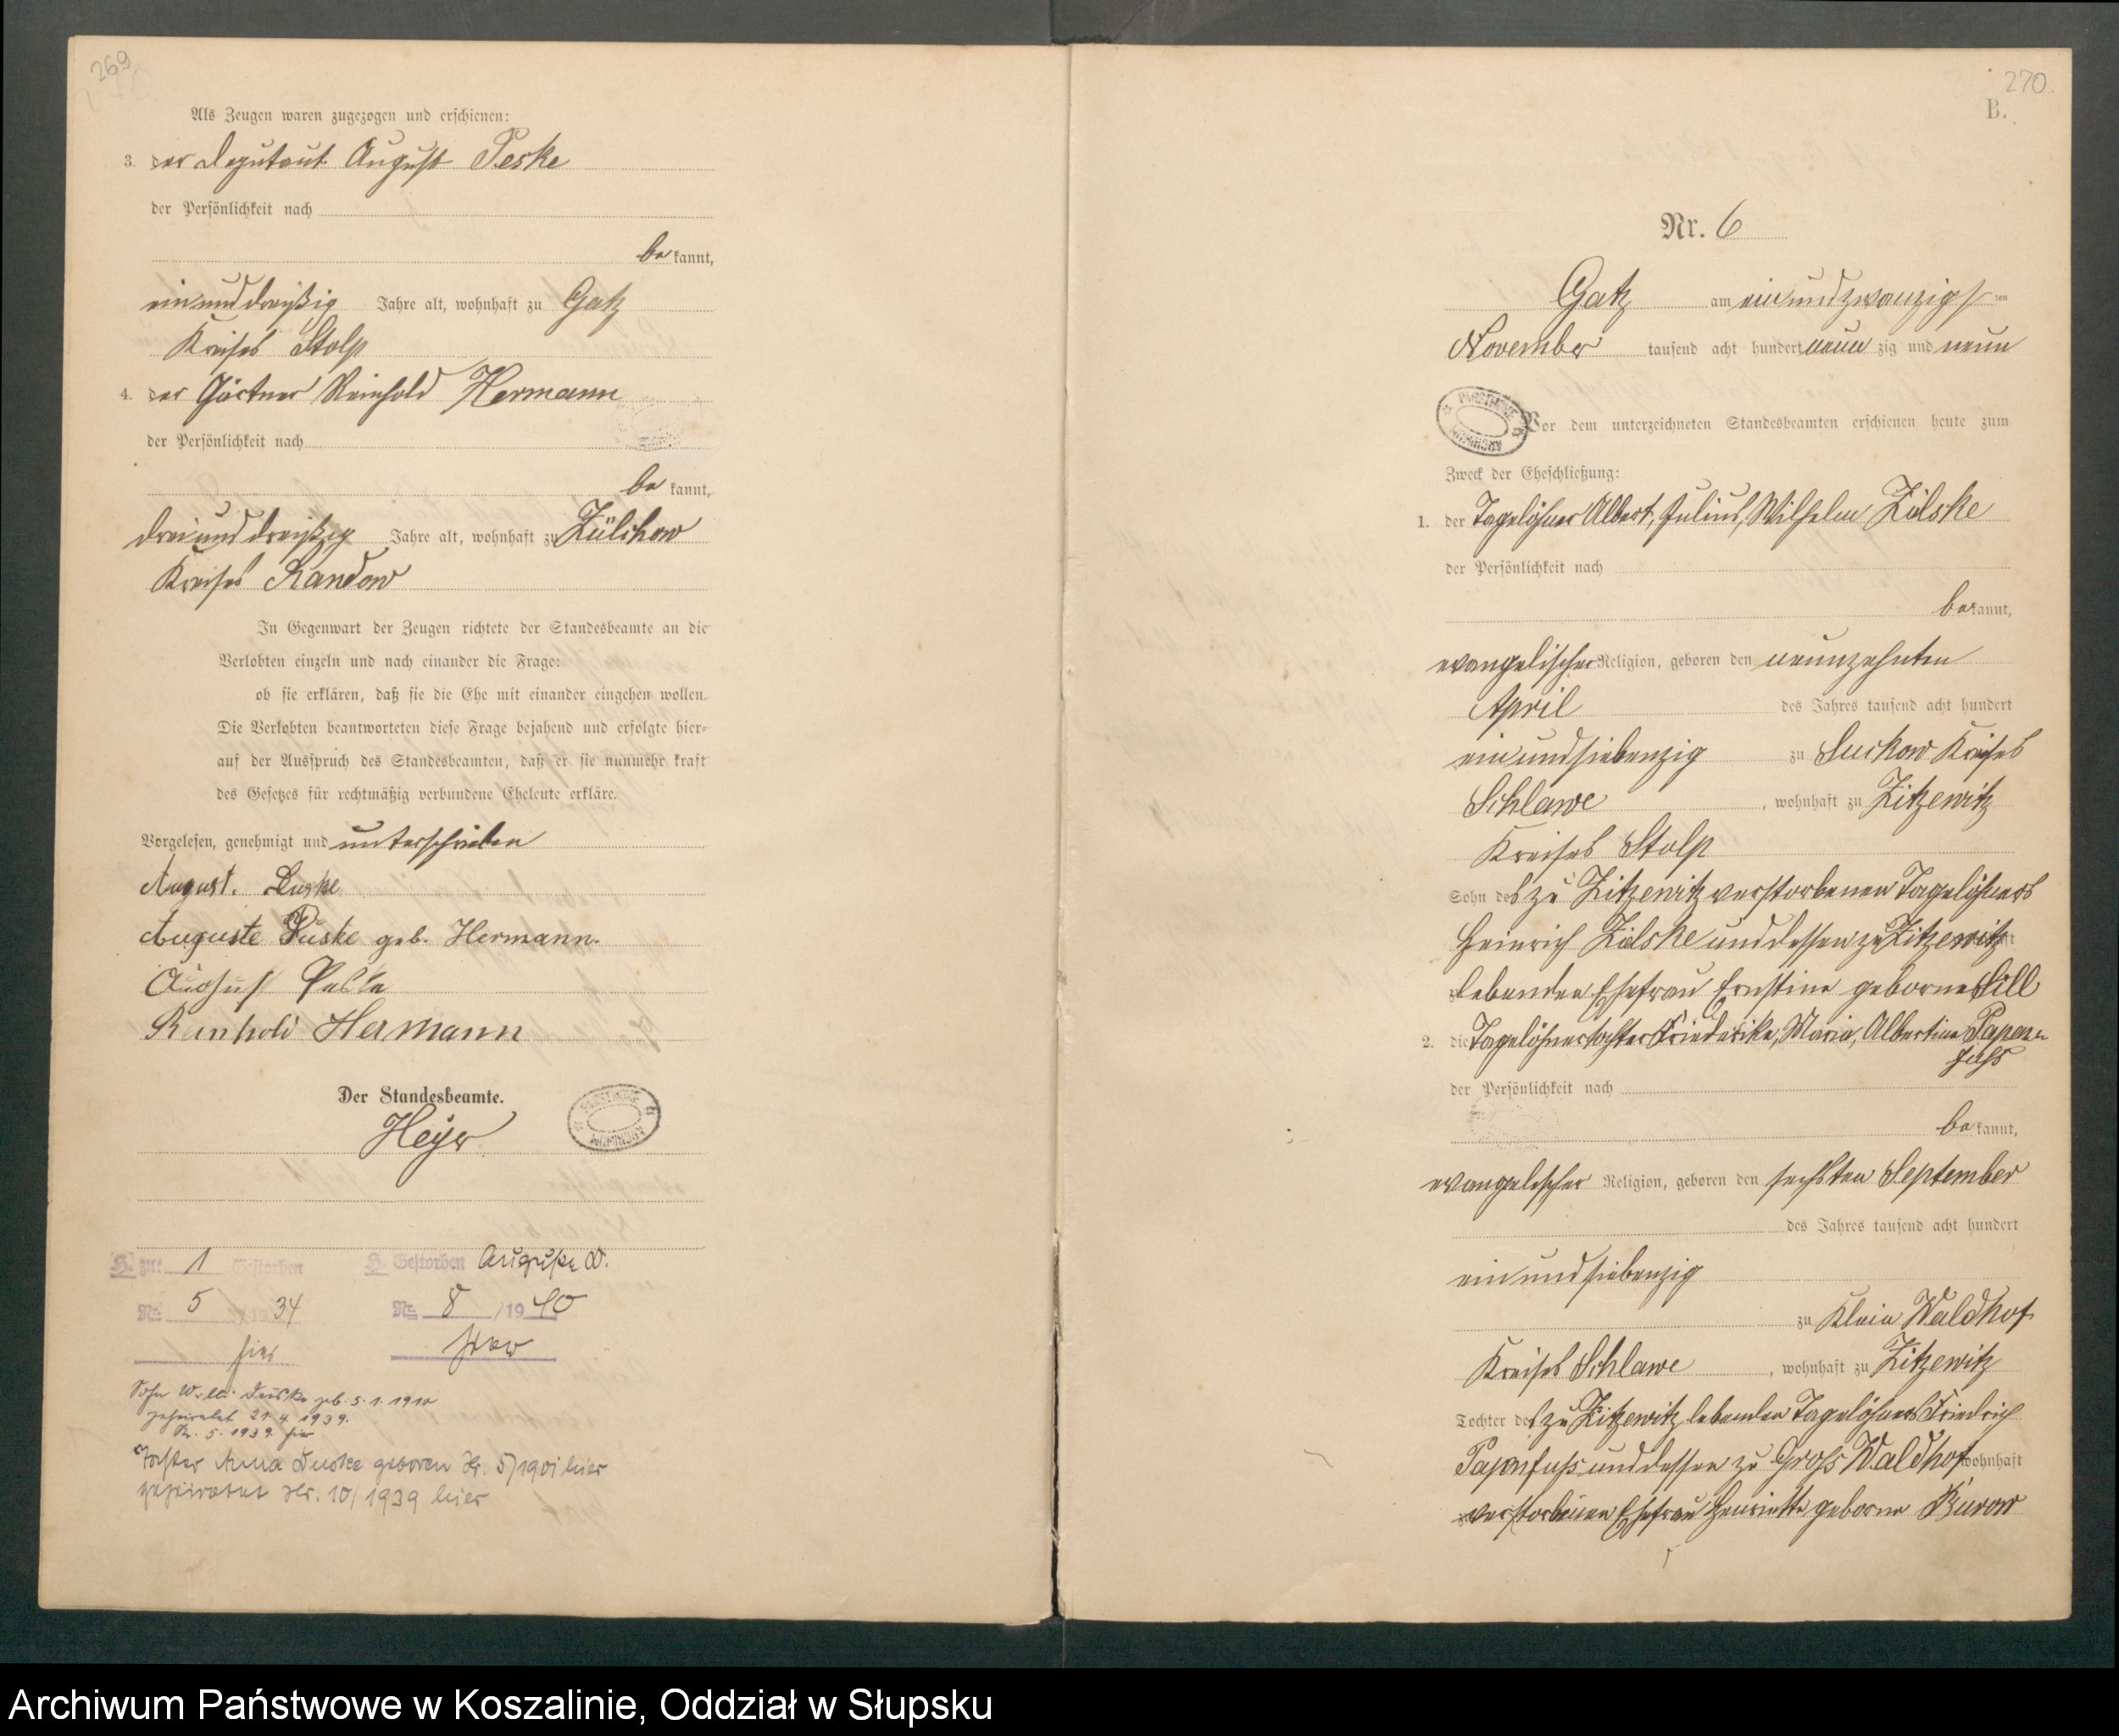 269
Als Zeugen waren zugezogen und erschienen:
3. der Deputant August Peske
der Persönlichkeit nach
be kannt,
einunddreißig Jahre alt, wohnhaft zu Gatz
Kreises Stolp
4. der Gärtner Reinhold Hermann
der Persönlichkeit nach
be kannt,
dreiunddreißig Jahre alt, wohnhaft zu Züllchow
Kreises Randow
In Gegenwart der Zeugen richtete der Standesbeamte an die
Verlobten einzeln und nach einander die Frage:
ob sie erklären, daß sie die Ehe mit einander eingehen wollen.
Die Verlobten beantworteten diese Frage bejahend und erfolgte hier-
auf der Ausspruch des Standesbeamten, daß er sie nunmehr kraft
des Gesetzes für rechtmäßig verbundene Eheleute erkläre.
Vorgelesen, genehmigt und unterschrieben
August. Duske
Auguste Duske geb. Hermann.
August Peske
Reinhold Hermann
Der Standesbeamte.
Heyer
1 Gestorben
Nr. 5 / 19 34
hier
Gestorben Auguste D.
Nr. 8 / 19 40
hier
Sohn Willi Duske geb. 5.1.1910
geheiratet 21.4.1939.
Nr. 5. 1939. hier
Tochter Anna Duske geboren Nr. 5/1901 hier
geheiratet Nr. 10/1939 hier
270.
B.
Nr. 6
Gatz am einundzwanzigsten
November tausend acht hundert neun zig und neun
Vor dem unterzeichneten Standesbeamten erschienen heute zum
Zweck der Eheschließung:
1. der Tagelöhner Albert, Julius, Wilhelm Zölske
der Persönlichkeit nach
be kannt,
evangelischer Religion, geboren den neunzehnten
April des Jahres tausend acht hundert
einundsiebenzig zu Suckow Kreises
Schlawe, wohnhaft zu Zitzewitz
Kreises Stolp
Sohn des zu Zitzewitz verstorbenen Tagelöhners
Heinrich Zölske und dessen zu Zitzewitz
lebenden Ehefrau Ernstine geborne Sill
2. die Tagelöhnertochter Friederike, Maria, Albertine Papen-
fuhs
der Persönlichkeit nach
be kannt,
evangelischer Religion, geboren den sechsten September
des Jahres tausend acht hundert
einundsiebenzig
zu Klein Waldhof
Kreises Schlawe, wohnhaft zu Zitzewitz
Tochter des zu Zitzewitz lebenden Tagelöhners Friedrich
Papenfuhs und dessen zu Gross Waldhof wohnhaft
verstorbenen Ehefrau Henriette geborne Burow
Archiwum Państwowe w Koszalinie, Oddział w Słupsku